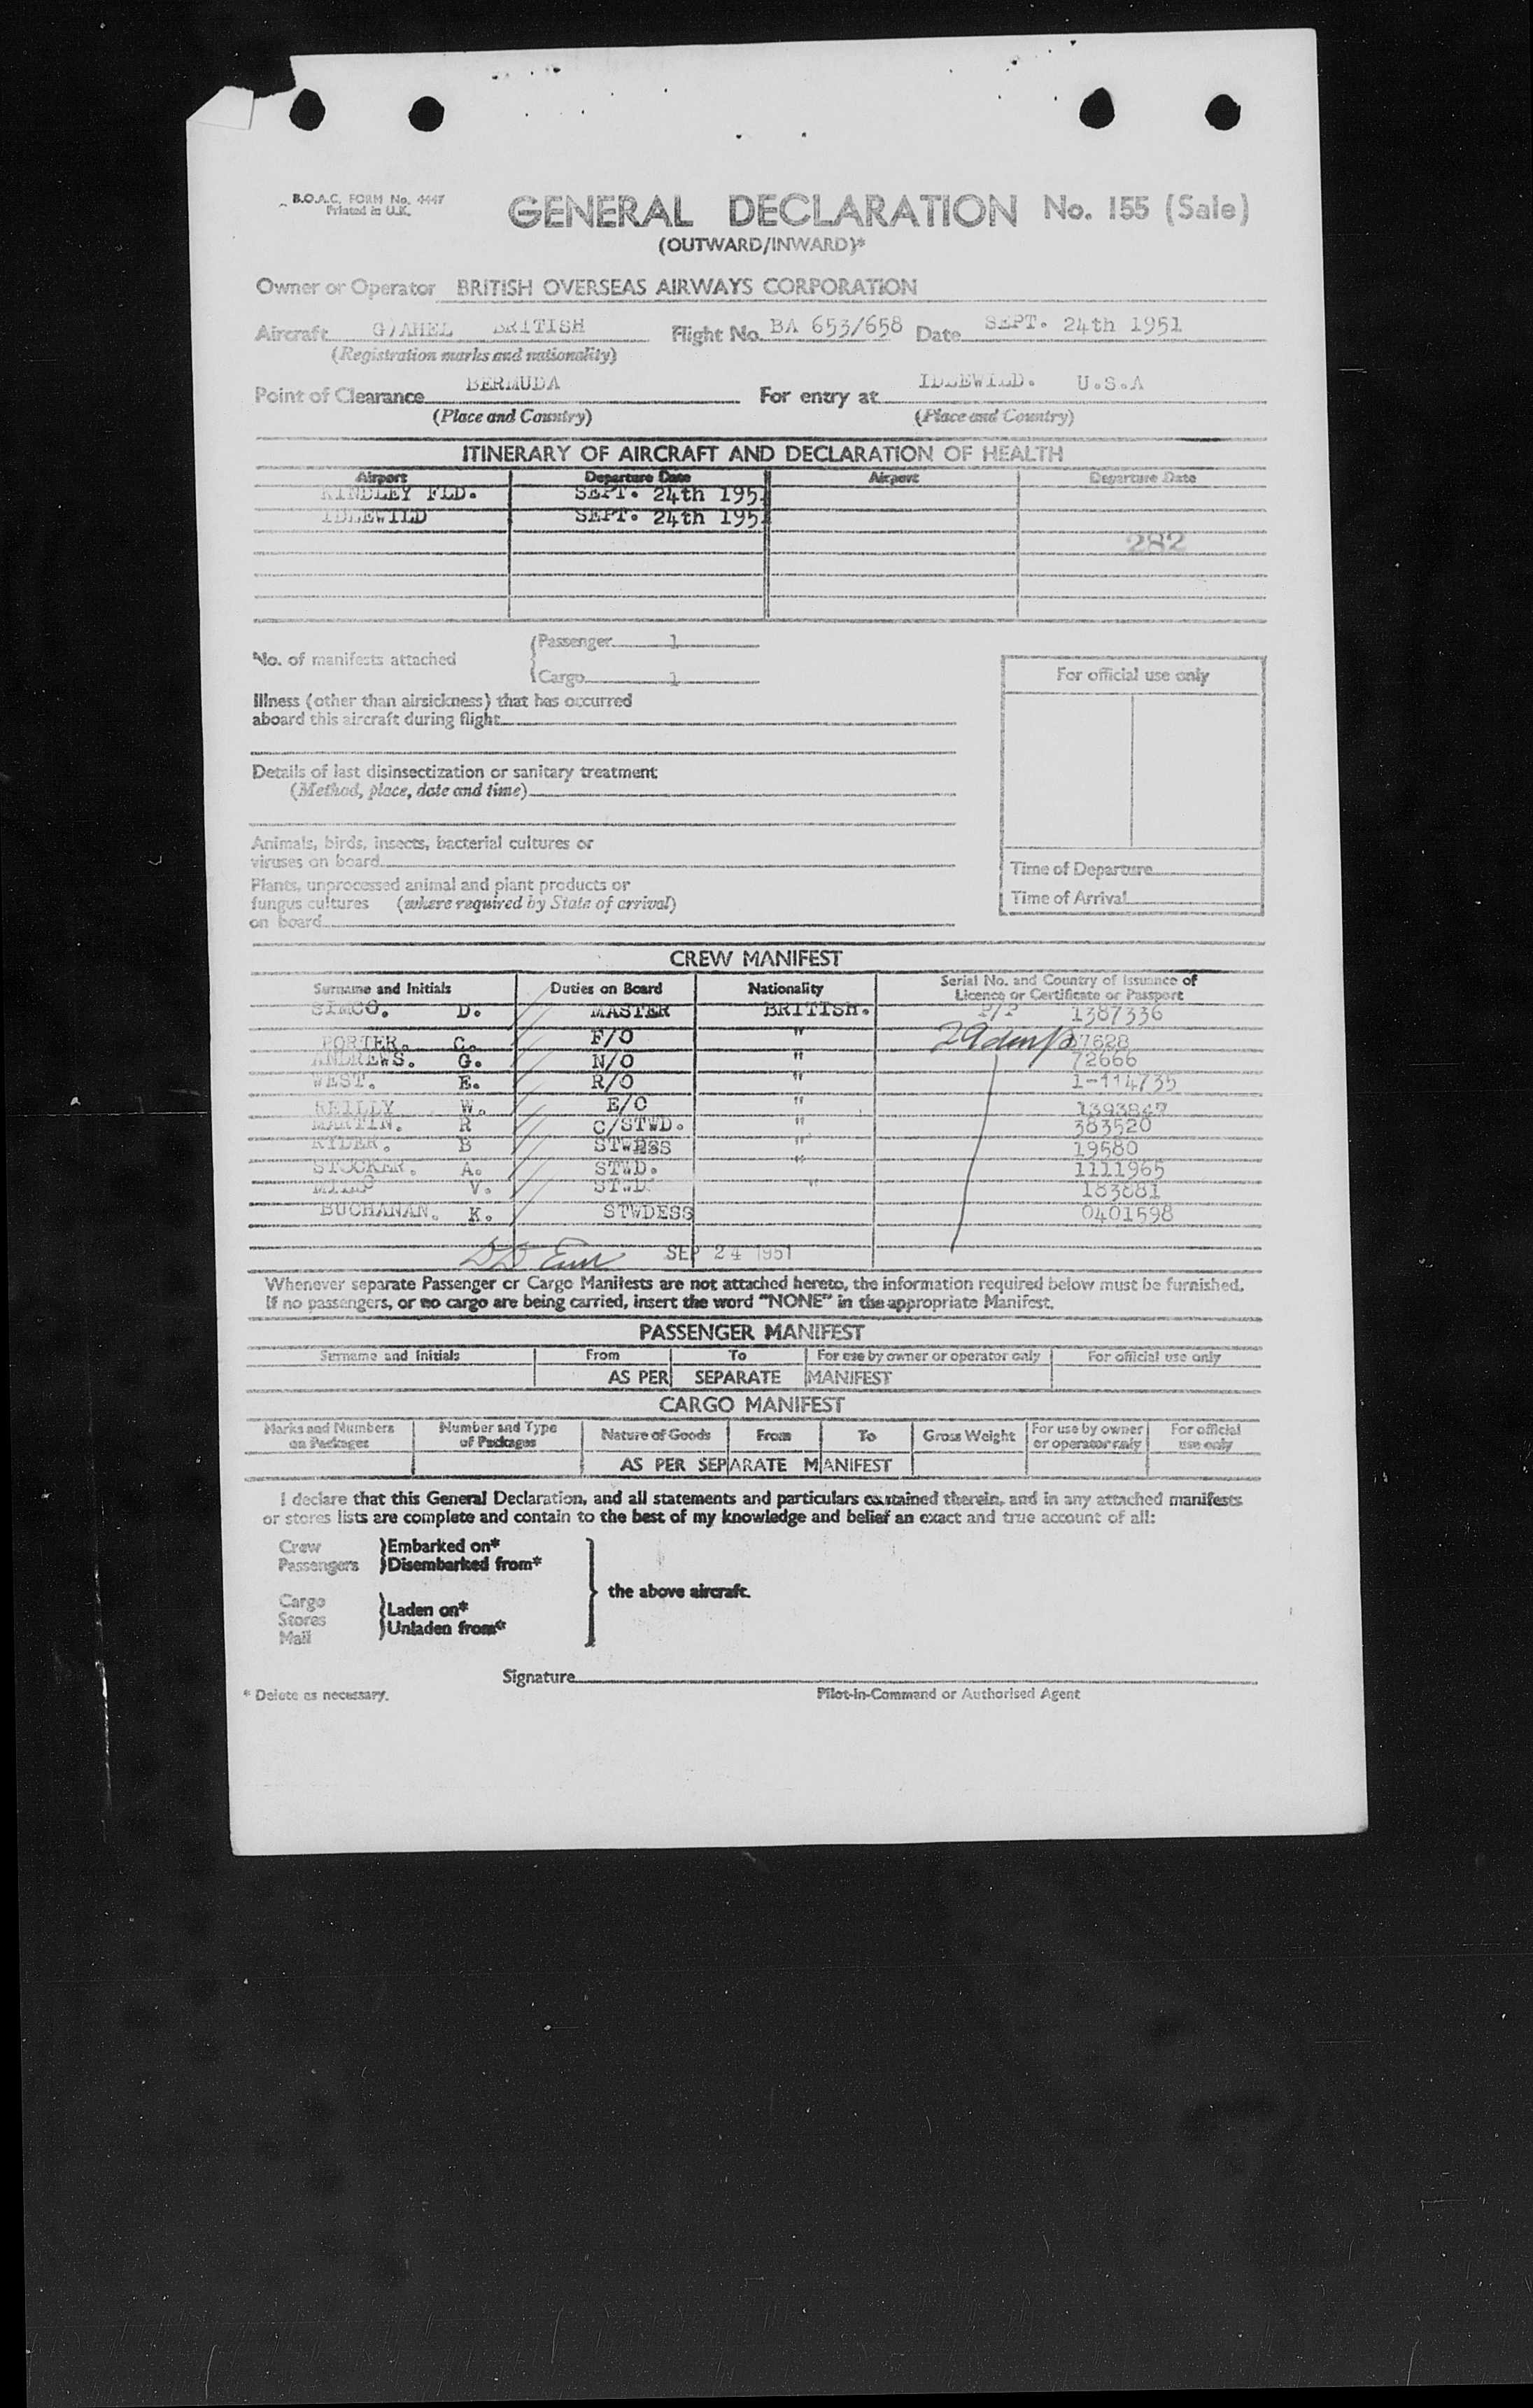 B.O.A.C. FORM No. 4447
Printed in U.K.
GENERAL DECLARATION No. 155 (Sale)
(OUTWARD/INWARD)*
Owner or Operator BRITISH OVERSEAS AIRWAYS CORPORATION
Aircraft G/AHEL BRITISH Flight No. BA 653/658 Date SEPT. 24th 1951
(Registration marks and nationality)
Point of Clearance BERMUDA For entry at IDLEWILD. U.S.A
(Place and Country) (Place and Country)
ITINERARY OF AIRCRAFT AND DECLARATION OF HEALTH
Airport Departure Date Airport Departure Date
KINDLEY FLD. SEPT. 24th 1951
IDLEWILD SEPT. 24th 1951
282
No. of manifests attached
Passenger 1
Cargo 1
For official use only
Illness (other than airsickness) that has occurred
aboard this aircraft during flight
Details of last disinsectization or sanitary treatment
(Method, place, date and time)
Animals, birds, insects, bacterial cultures or
viruses on board
Time of Departure
Plants, unprocessed animal and plant products or
fungus cultures (where required by State of arrival)
on board
Time of Arrival
CREW MANIFEST
Surname and Initials Duties on Board Nationality Serial No. and Country of Issuance of
Licence or Certificate or Passport
SIMCO. D. MASTER BRITISH. P/P 1387336
PORTER. C. F/O " 7628
ANDREWS. G. N/O " 72666
WEST. E. R/O " 1-114735
REILLY W. E/O " 1393847
MARTIN. R C/STWD. " 383520
RYDER. B STWDSS " 19580
STOCKER. A. STWD. " 1111965
V. STWD. " 183881
BUCHANAN. K. STWDESS 0401598
SEP 24 1951
Whenever separate Passenger or Cargo Manifests are not attached hereto, the information required below must be furnished.
If no passengers, or no cargo are being carried, insert the word "NONE" in the appropriate Manifest.
PASSENGER MANIFEST
Surname and Initials From To For use by owner or operator only For official use only
AS PER SEPARATE MANIFEST
CARGO MANIFEST
Marks and Numbers on Packages Number and Type of Packages Nature of Goods From To Gross Weight For use by owner or operator only For official use only
AS PER SEPARATE MANIFEST
I declare that this General Declaration, and all statements and particulars contained therein, and in any attached manifests
or stores lists are complete and contain to the best of my knowledge and belief an exact and true account of all:
Crew Embarked on*
Passengers Disembarked from*
the above aircraft.
Cargo
Stores Laden on*
Mail Unladen from*
Signature
* Delete as necessary. Pilot-in-Command or Authorised Agent